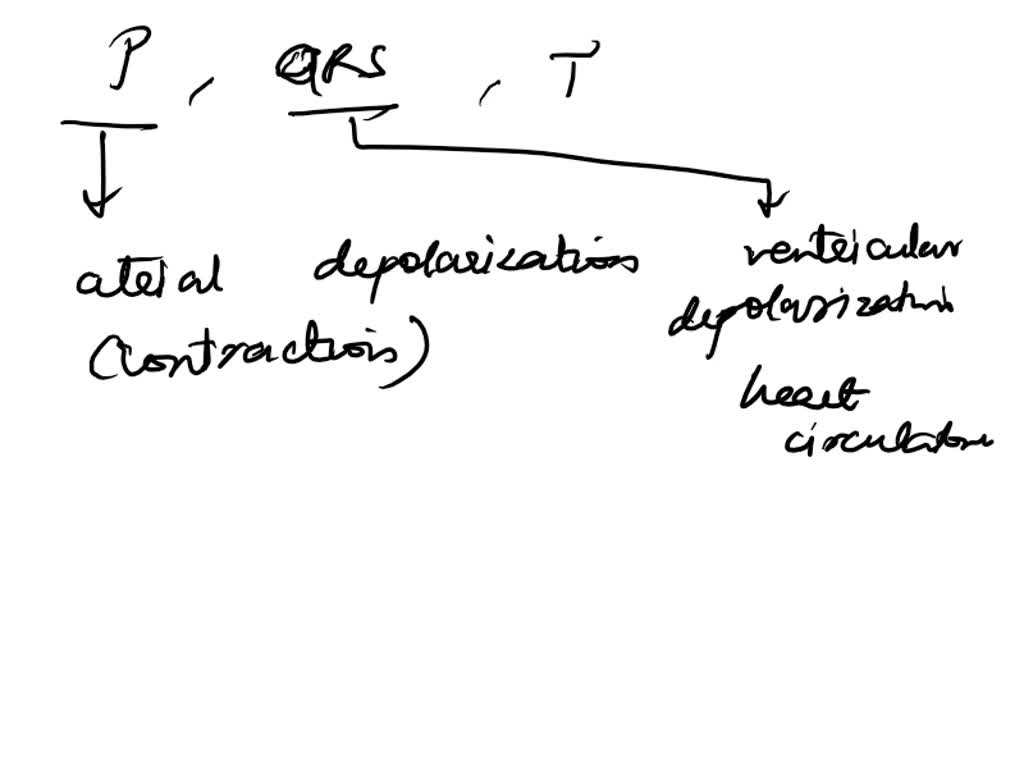 P , QRS , T
atrial depolarization
(contraction)
ventricular
depolarization
heart
circulation